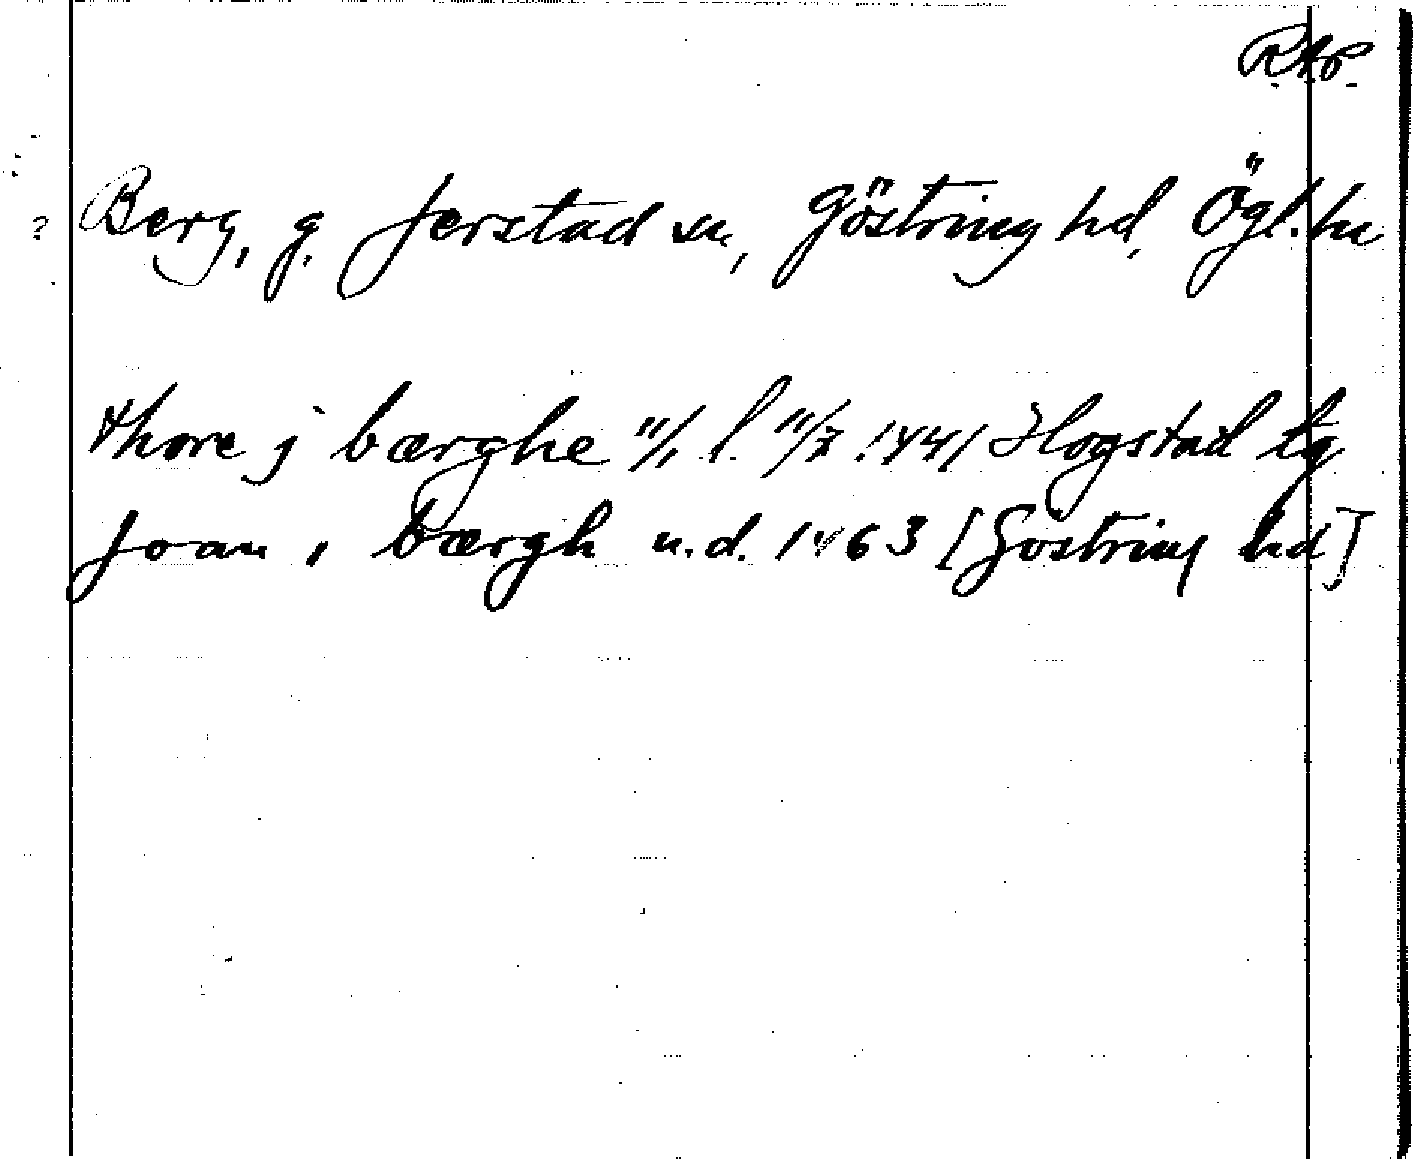 RAP.
Berg, g. Jerstad sn, Göstring hd, Ögl. ln
thore j bærghe 11/1 l. 11/7 1441 Hogstad tg
Joan i bærgh u.d. 1463 [Gostring hd]